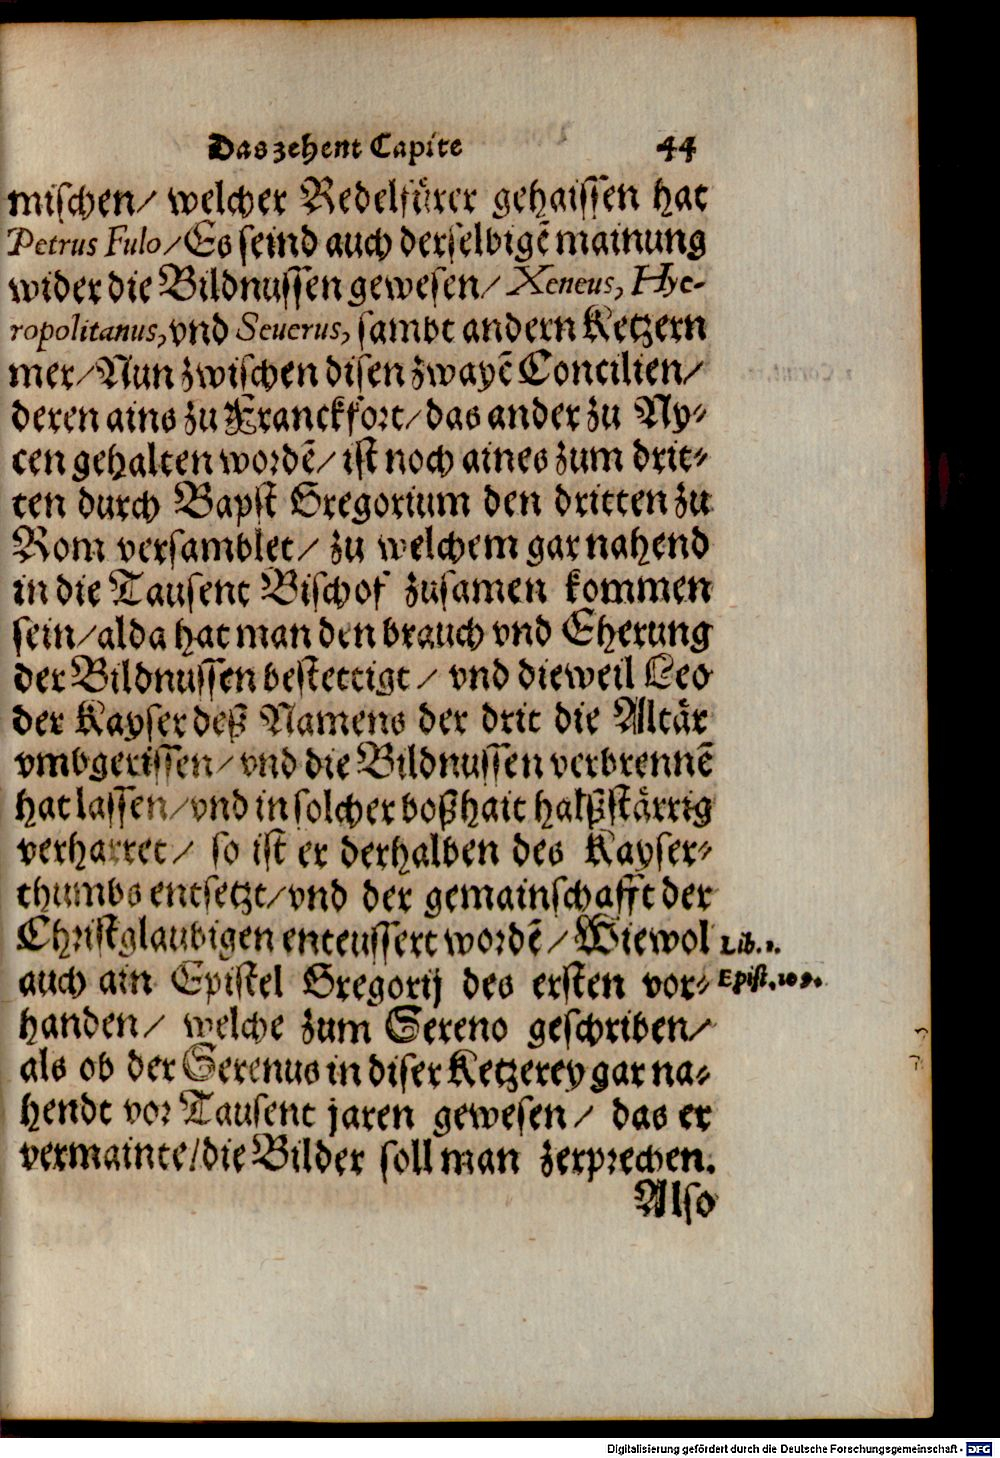 Das zehent Capite 44
mischen/ welcher Redelfürer gehaissen hat
Petrus Fulo/ Es seind auch derselbigē mainung
wider die Bildnussen gewesen/ Xeneus, Hye-
ropolitanus, vnd Seuerus, sambt andern Ketzern
mer/ Nun zwischen disen zwayē Concilien/
deren ains zu Franckfort/ das ander zu Ny-
cen gehalten wordē/ ist noch aines zum drit-
ten durch Bapst Gregorium den dritten zu
Rom versamblet/ zu welchem gar nahend
in die Tausent Bischof zusamen kommen
sein/ alda hat man den brauch vnd Eherung
der Bildnussen bestettigt/ vnd dieweil Leo
der Kayser deß Namens der drit die Altär
vmbgerissen/ vnd die Bildnussen verbrennē
hat lassen/ vnd in solcher boßhait halßstärrig
verharret/ so ist er derhalben des Kayser-
thumbs entsetzt/ vnd der gemainschafft der
Christglaubigen enteussert wordē/ Wiewol
Lib. 1.
auch ain Epistel Gregorij des ersten vor-
Epist. 109.
handen/ welche zum Sereno geschriben/
als ob der Serenus in diser Ketzerey gar na-
hendt vor Tausent jaren gewesen/ das er
vermainte/ die Bilder soll man zerprechen.
Also
Digitalisierung gefördert durch die Deutsche Forschungsgemeinschaft - DFG